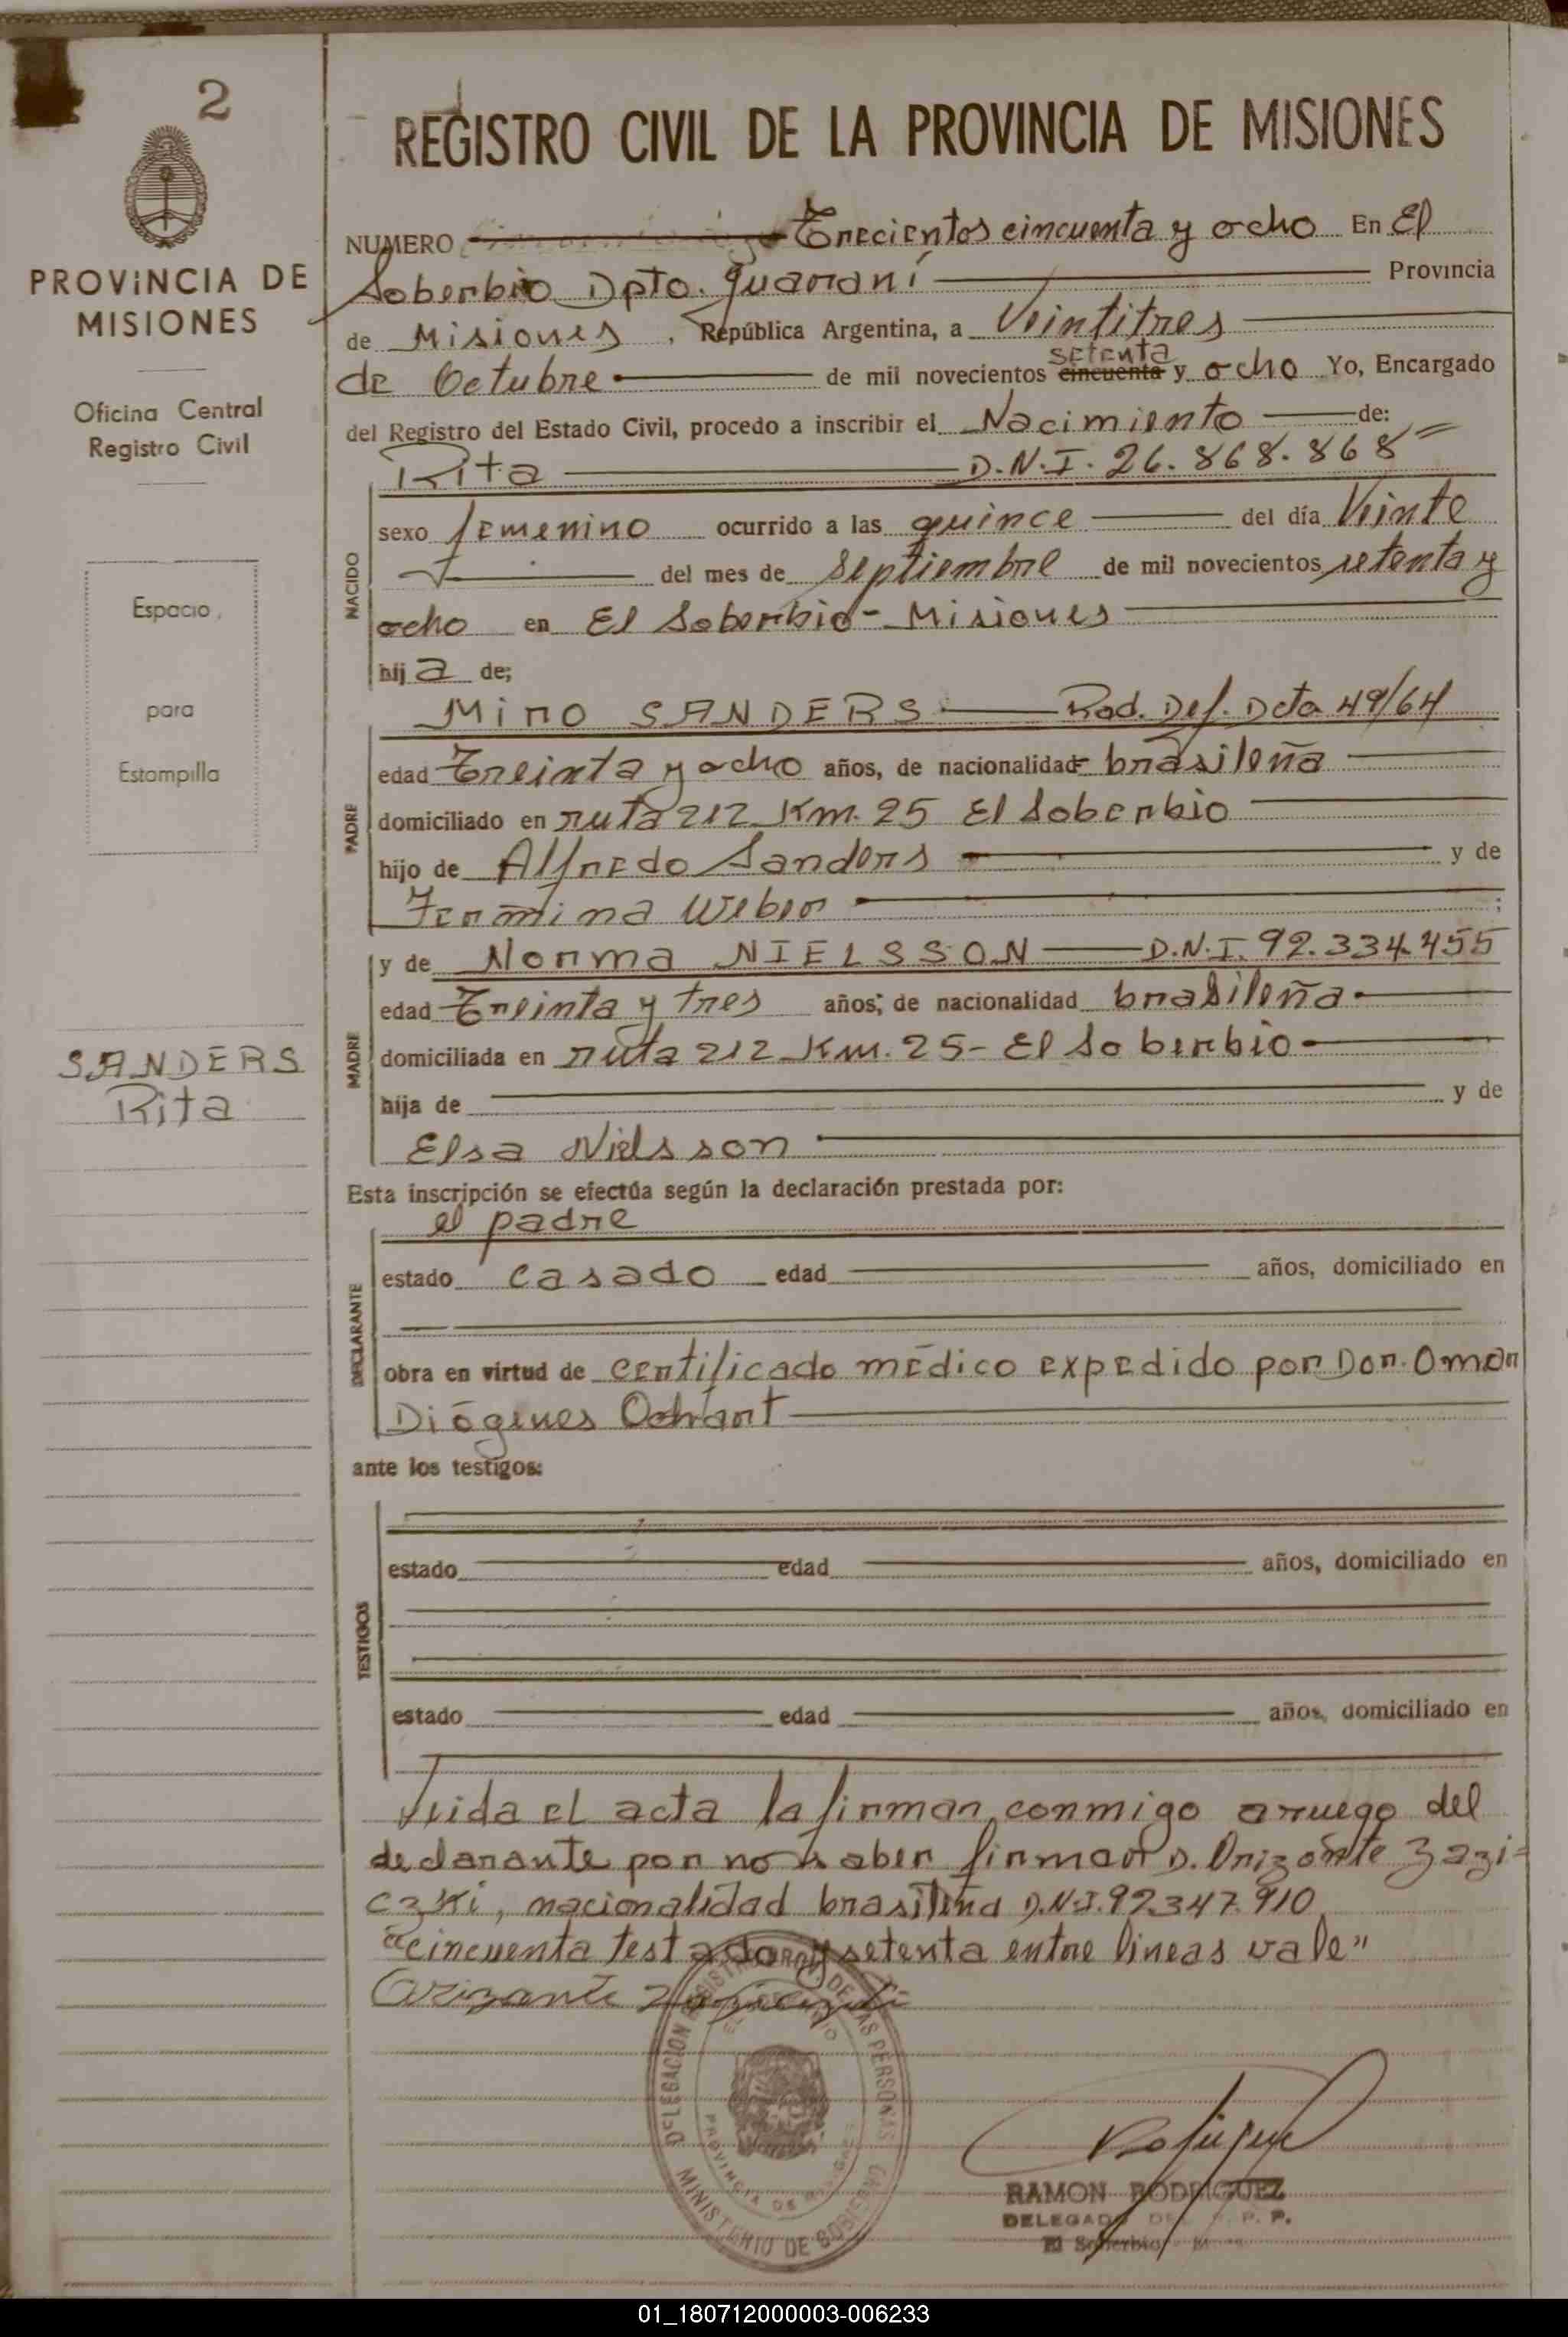 2
PROVINCIA DE
MISIONES
Oficina Central
Registro Civil
Espacio
para
Estampilla
SANDERS
Rita
REGISTRO CIVIL DE LA PROVINCIA DE MISIONES
NUMERO Trecientos cincuenta y ocho En El
Soberbio Dpto. Guaraní Provincia
de Misiones, República Argentina, a Veintitres
setenta
de Octubre de mil novecientos cincuenta y ocho Yo, Encargado
del Registro del Estado Civil, procedo a inscribir el Nacimiento de:
Rita D.N.I. 26.868.868
NACIDO
sexo femenino ocurrido a las quince del día Veinte
del mes de septiembre de mil novecientos setenta y
ocho en El Soberbio - Misiones
hij a de;
PADRE
Miro SANDERS Rad. Def. Dcto 49/64
edad Treinta y ocho años, de nacionalidad brasileña
domiciliado en ruta 212 Km. 25 El Soberbio
hijo de Alfredo Sanders y de
Fermina Weber ;
MADRE
y de Norma NIELSSON D.N.I. 92.334.455
edad Treinta y tres años; de nacionalidad brasileña
domiciliada en ruta 212 Km. 25 - El Soberbio
hija de y de
Elsa Nielsson
Esta inscripción se efectúa según la declaración prestada por:
DECLARANTE
el padre
estado casado edad años, domiciliado en
obra en virtud de certificado médico expedido por Don. Omar
Diógenes
ante los testigos:
TESTIGOS
estado edad años, domiciliado en
estado edad años, domiciliado en
Leida el acta la firman conmigo a ruego del
declarante por no saber firmar D. Orizonte Zazi=
czki, nacionalidad brasileña D.N.I. 92.347.910
"cincuenta testado y setenta entre lineas vale"
Orizonte
DELEGACION REGISTRO PROV. DE LAS PERSONAS
EL SOBERBIO
PROVINCIA DE MISIONES
MINISTERIO DE GOBIERNO
RAMON RODRIGUEZ
DELEGADO DEL R. P. P.
El Soberbio
01_180712000003-006233